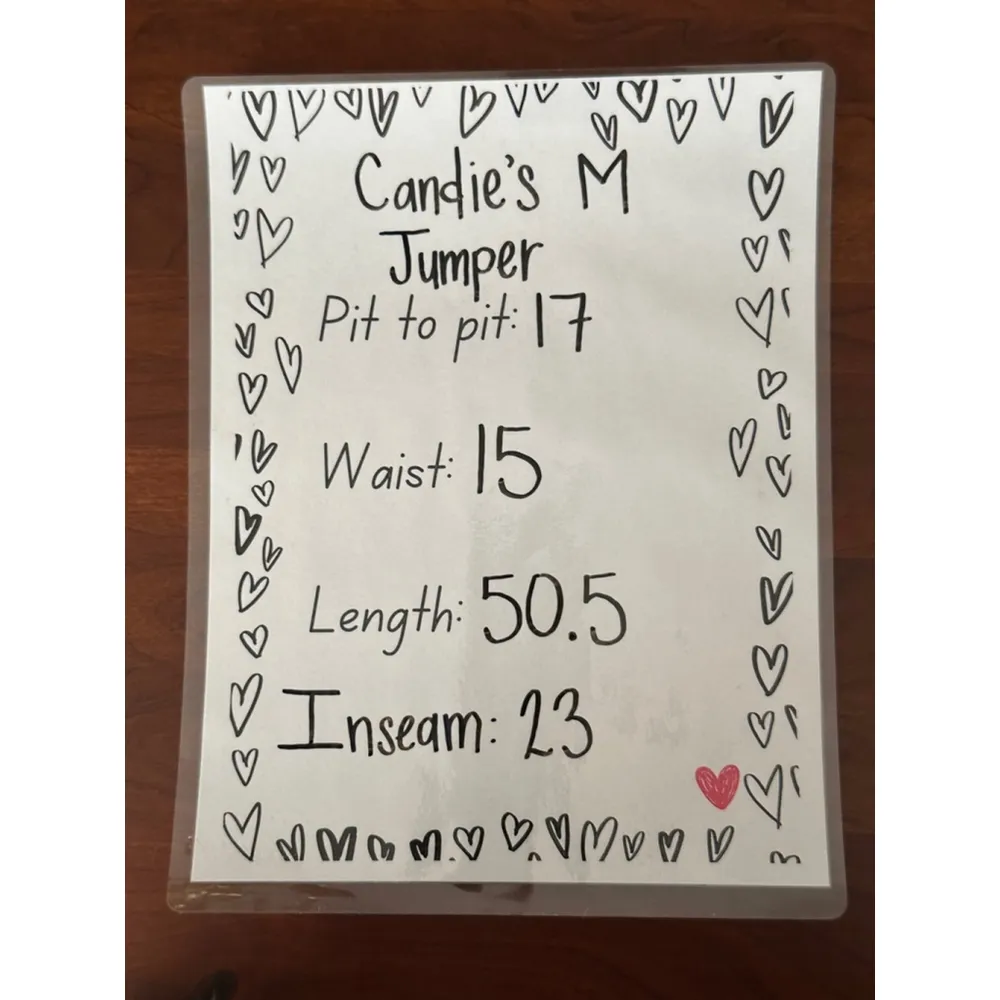 Candie's M
Jumper
Pit to pit: 17
Waist: 15
Length: 50.5
Inseam: 23